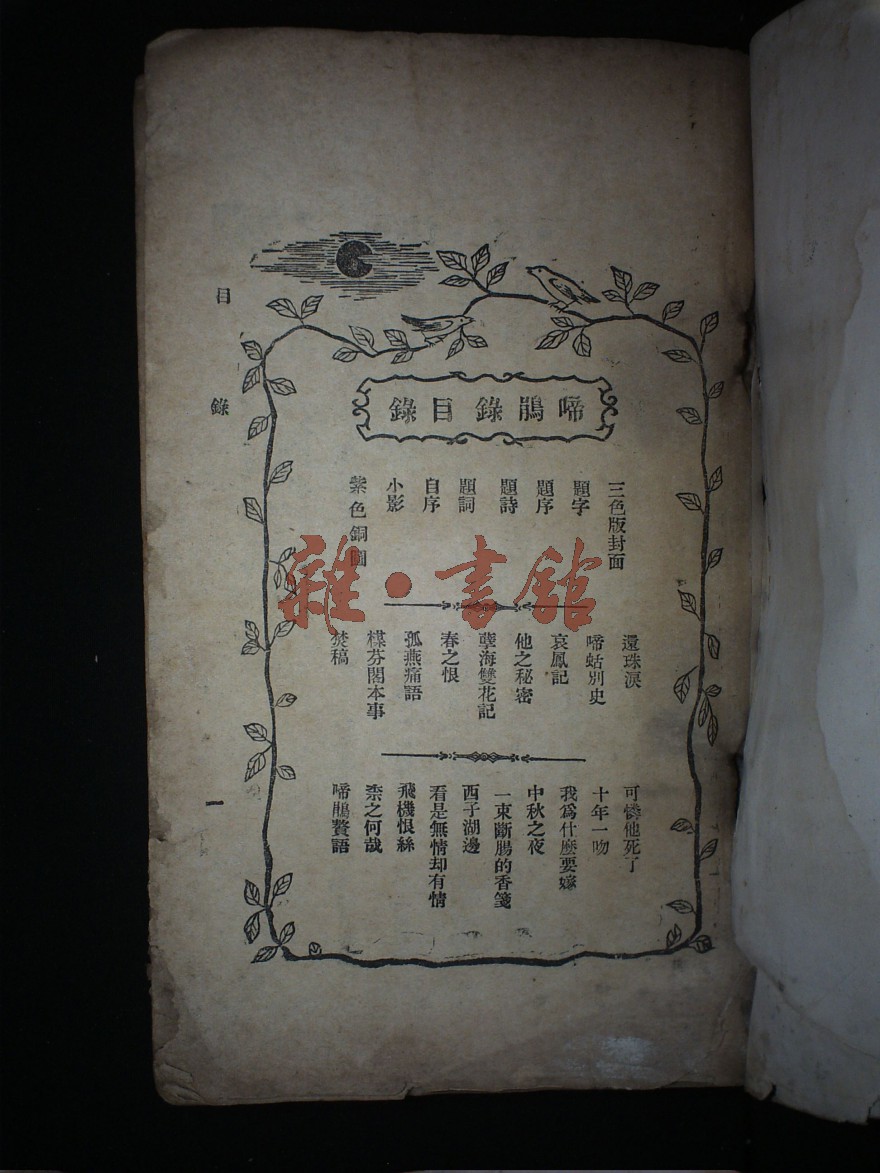 目錄
啼鵑錄目錄
三色版封面
題字
題序
題詩
題詞
自序
小影
紫色銅圖
還珠淚
啼蛄別史
哀鳳記
他之秘密
孽海雙花記
春之恨
孤燕痛語
楳芬閣本事
焚稿
可憐他死了
十年一吻
我爲什麼要嫁
中秋之夜
一束斷腸的香箋
西子湖邊
看是無情却有情
飛機恨絲
柰之何哉
啼鵑贅語
一
雜·書館